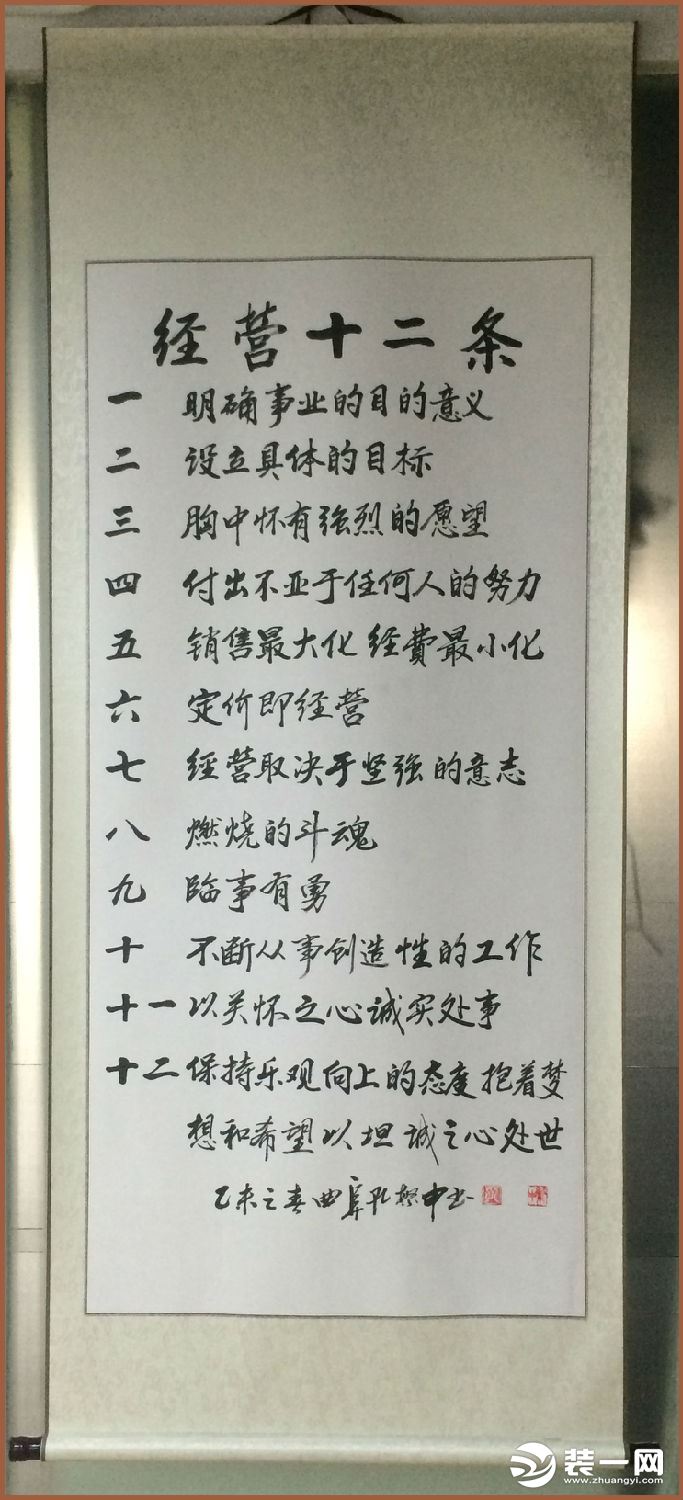 经营十二条
一 明确事业的目的意义
二 设立具体的目标
三 胸中怀有强烈的愿望
四 付出不亚于任何人的努力
五 销售最大化 经费最小化
六 定价即经营
七 经营取决于坚强的意志
八 燃烧的斗魂
九 临事有勇
十 不断从事创造性的工作
十一 以关怀之心诚实处事
十二 保持乐观向上的态度 抱着梦
想和希望以坦诚之心处世
乙未之春曲阜孔 中书
装一网
www.zhuangyi.com